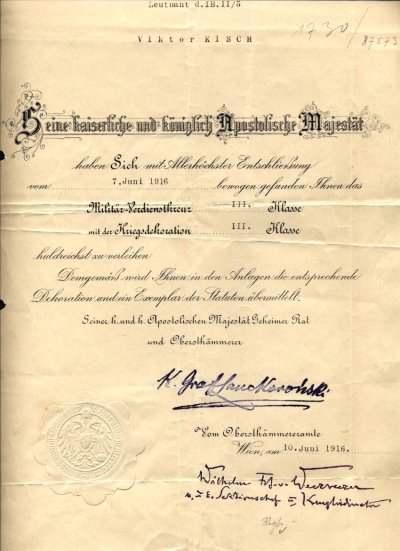 Leutnant d.IB.II/5
Viktor KISCH
1730/87573
Seine kaiserliche und königlich Apostolische Majestät
haben Sich mit Allerhöchster Entschließung
vom 7.Juni 1916 bewogen gefunden Ihnen das
Militär-Verdienstkreuz III. Klasse
mit der Kriegsdekoration III. Klasse
huldreichst zu verleihen.
Demgemäß wird Ihnen in den Anlagen die entsprechende
Dekoration und ein Exemplar der Statuten übermittelt.
Seiner k. und k. Apostolischen Majestät Geheimer Rat
und Oberstkämmerer
K. Graf Lanckoroński
Vom Oberstkämmereramte
Wien, am 10.Juni 1916.
Wilhelm Frh. v.